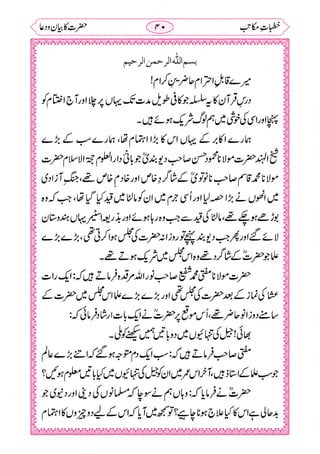 خطباتِ مکاتب ۴۰ حضرت کا بیان و دعا
بسم اللہ الرحمن الرحیم
میرے قابلِ احترام حاضرینِ کرام!
درسِ قرآن کا یہ سلسلہ جو کافی طویل مدت تک یہاں پر چلا اور آج اختتام کو
پہنچا اور اسی کی خوشی میں ہم لوگ شریک ہوئے ہیں۔
ہمارے اکابر کے یہاں اس کا بڑا اہتمام تھا، ہمارے سب کے بڑے
شیخ الہند حضرت مولانا محمود حسن صاحب دیوبندیؒ جو بانیٔ دار العلوم حجۃ الاسلام حضرت
مولانا محمد قاسم صاحب نانوتویؒ کے شاگردِ خاص اور خادمِ خاص تھے، جنگِ آزادی
میں انھوں نے بڑا حصہ لیا اور اسی جرم میں ان کو مالٹا میں قید کیا گیا تھا، جب کہ وہ
بوڑھے ہو چکے تھے، مالٹا کی قید سے جب وہ رہا ہوئے اور بذریعہ اسٹیمر یہاں ہندوستان
لائے گئے اور پھر جب دیوبند پہنچے تو روزانہ حضرت کی مجلس ہوا کرتی تھی، بڑے بڑے
علما جو حضرتؒ کے شاگرد تھے وہ اس مجلس میں شریک ہوتے تھے۔
حضرت مولانا مفتی محمد شفیع صاحب نور اللہ مرقدہ فرماتے ہیں کہ: ایک رات
عشا کی نماز کے بعد حضرت کی مجلس تھی اور بڑے بڑے علما اس مجلس میں حضرت کے
سامنے دو زانو حاضر تھے، اُس موقع پر حضرتؒ نے ایک بات ارشاد فرمائی کہ:
بھائی! جیل کی تنہائیوں میں دو باتیں ہمیں سیکھنے کو ملی۔
مفتی صاحب فرماتے ہیں کہ: سب ایک دم متوجہ ہو گئے کہ اتنے بڑے عالم
جو سب علما کے استاذ ہیں، آخر اس عمر میں ان کو جیل کی تنہائیوں میں کیا باتیں معلوم ہوئیں؟
حضرتؒ نے فرمایا کہ: وہاں ہم نے سوچا کہ مسلمانوں کی دینی اور دنیوی جو
بدحالی ہے اس کا کیا علاج ہونا چاہیے؟ تو سمجھ میں آیا کہ اس کے لیے دو چیزوں کا اہتمام